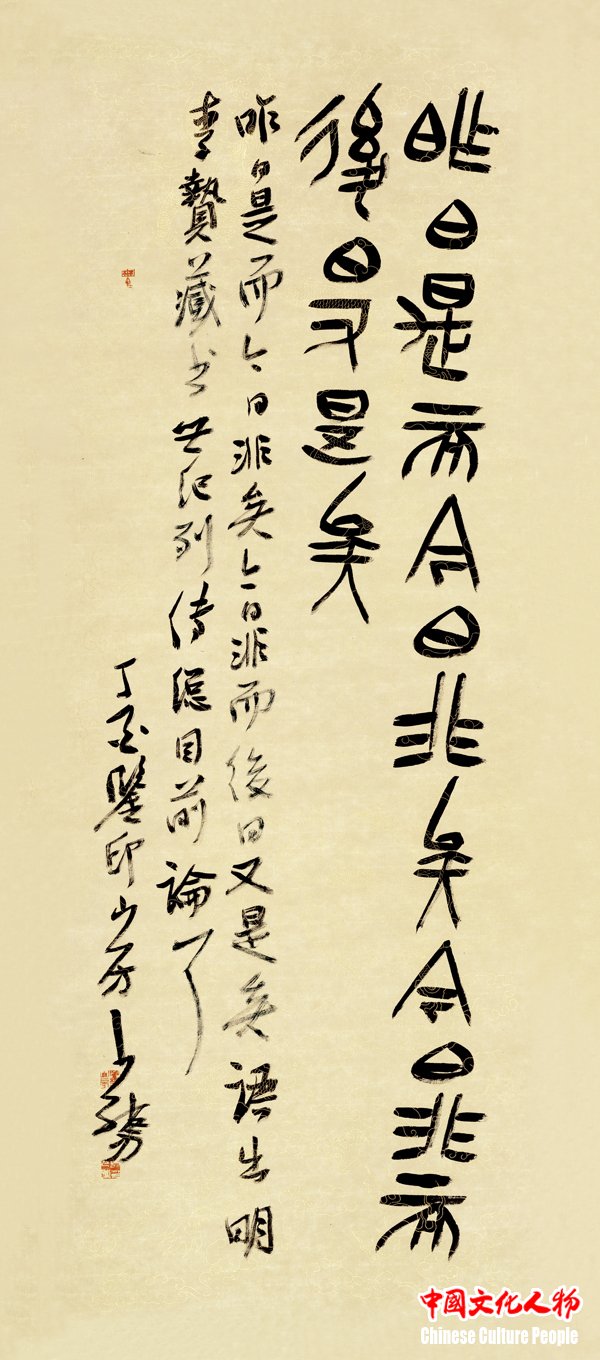 昨日是而今日非矣今日非而
後日又是矣
昨日是而今日非矣今日非而後日又是矣語出明
李贄藏書世紀列傳總目前論了
丁酉鑒印山房
中國文化人物
Chinese Culture People